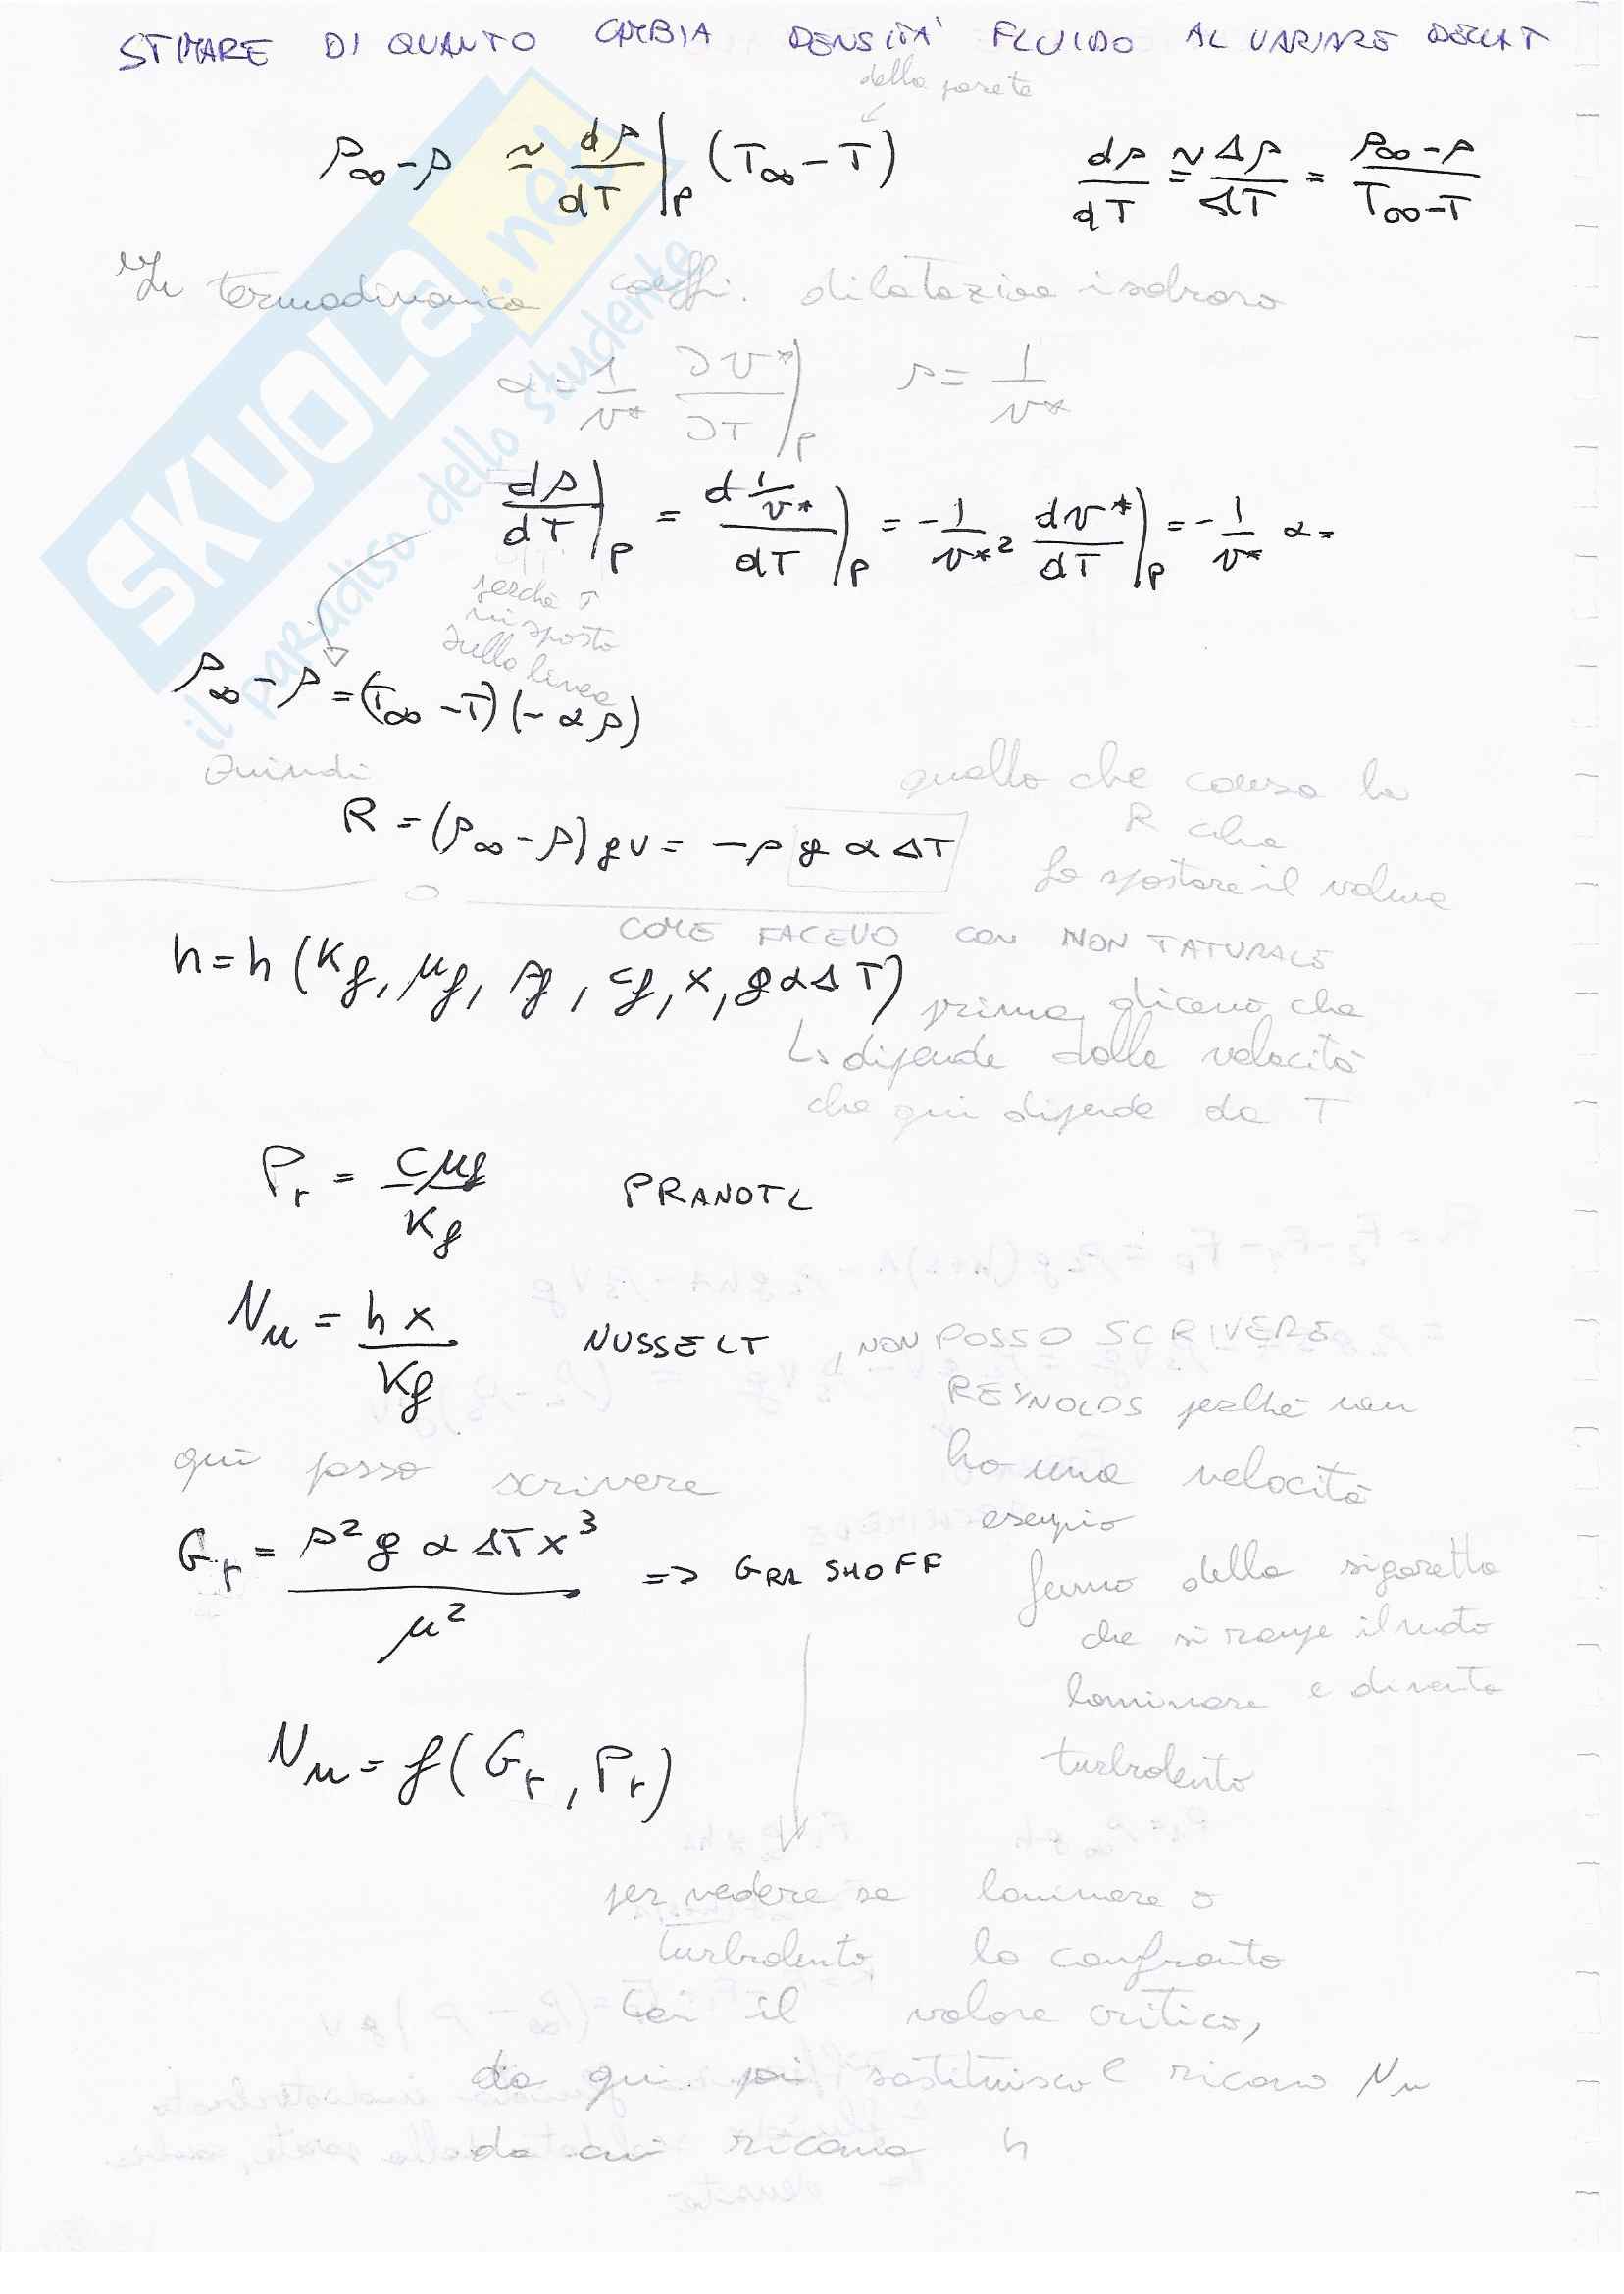 STIMARE DI QUANTO CAMBIA DENSITA' FLUIDO AL VARIARE DELLA T
della parete
ρ∞ - ρ ≃ dρ/dT |p (T∞ - T)    dρ/dT ≃ Δρ/ΔT = (ρ∞ - ρ)/(T∞ - T)
In termodinamica coeffi. dilatazione isobaro
α = 1/v* ∂v*/∂T |p    ρ = 1/v*
dρ/dT |p = d 1/v* / dT |p = - 1/v*² dv*/dT |p = - 1/v* α =
perché T
mi sposto
sullo linea
ρ∞ - ρ = (T∞ - T) (- α ρ)
Quindi
quello che causa la
R che
fa spostare il volume
R = (ρ∞ - ρ) g V = - ρ g α ΔT
COME FACEVO CON NON TATURALE
h = h (Kf, μf, ρf, cf, x, g α Δ T)
prima diceva che
↳ dipende dalla velocità
che qui dipende da T
Pr = c μf / Kf    PRANDTL
Nu = h x / Kf    NUSSELT, NON POSSO SCRIVERE
REYNOLDS perché non
ho una velocità
qui posso scrivere
esempio
Gr = ρ² g α ΔT x³ / μ²    => GRASHOFF
fumo della sigaretta
che si rompe il moto
laminare e diventa
turbolento
Nu = f (Gr, Pr)
per vedere se laminare o
turbolento, lo confronto
con il valore critico,
da qui poi sostituisco e ricavo Nu
da cui ricavo h
SKUOLA.net
il paradiso dello studente